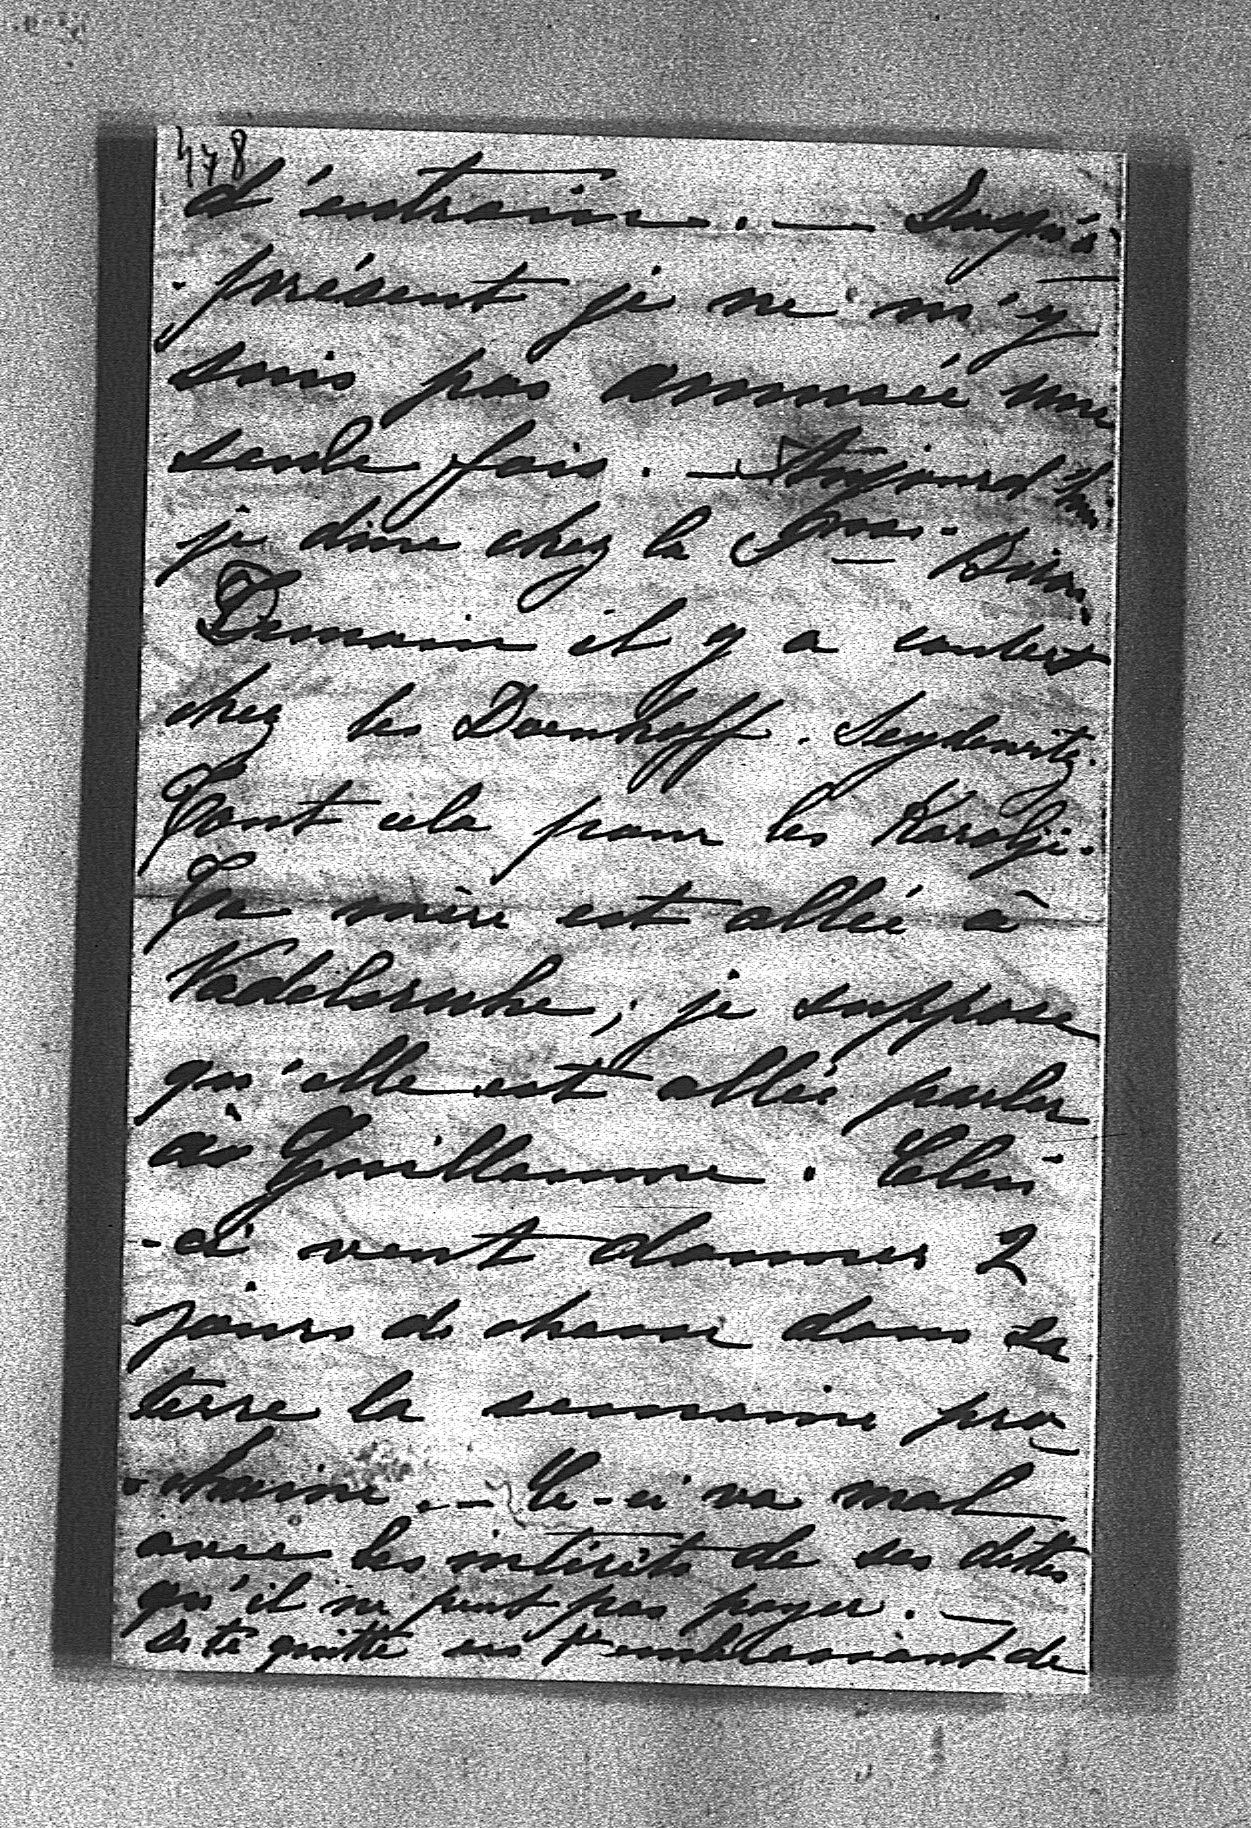 478
d'entrain. — Jusqu'à
présent je ne m'y
suis pas amusée une
seule fois. — Aujourd'hui
je dine chez la Pcess. Biron.
Demain il y a concert
chez les Doenhoff. Seydewitz.
Tout cela pour les Karolyi.
Ta mère est allée à
Nadelsruhe; je suppose
qu'elle est allée parler
à Guillaume. Celui
-ci veut donner 2
jours de chasse dans sa
terre la semaine pro
-chaine. — Ce-ci va mal
avec les intérêts de ses dettes
qu'il ne peut pas payer. —
Je te quitte en t'embrassant de